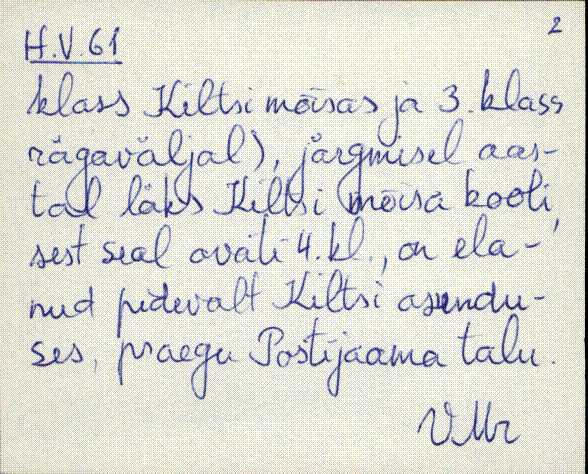 2
H.V. 61
klass Kiltsi mõisas ja 3. klass
rägaväljal), järgmisel aas-
tal läks Kiltsi mõisa kooli,
sest seal avati 4. kl., on ela-
nud pidevalt Kiltsi asundu-
ses, praegu Postijaama talu.
VMr